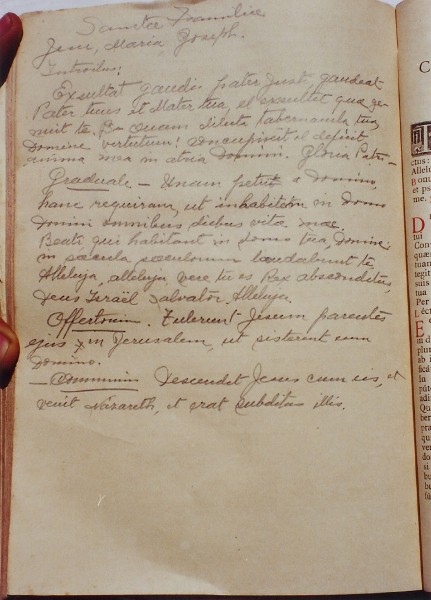 Sanctae Familiae
Jesu, Maria, Joseph.
Introitus:
Exsultat gaudio pater Justi gaudeat
Pater tuus et Mater tua, et exsultet quae ge-
nuit te. Ps Quam dilecta tabernacula tua,
Domine virtutum! concupiscit et deficit
anima mea in atria Domini. Gloria Patri-
Graduale - Unam petii a Domino,
hanc requiram, ut inhabitem in domo
Domini omnibus diebus vitae meae
Beati qui habitant in domo tua, Domine;
in saecula saeculorum laudabunt te
Alleluja, alleluja vere tu es Rex absconditus,
Deus Israël Salvator. Alleluja.
Offertorium. Tulerunt Jesum parentes
ejus in Jerusalem, ut sisterent eum
Domino.
- Communio Descendit Jesus cum eis, et
venit Nazareth, et erat subditus illis.
C
ctus:
Allelu
Bonu
et ps
me.
D
tui
Con
quæs
tuam